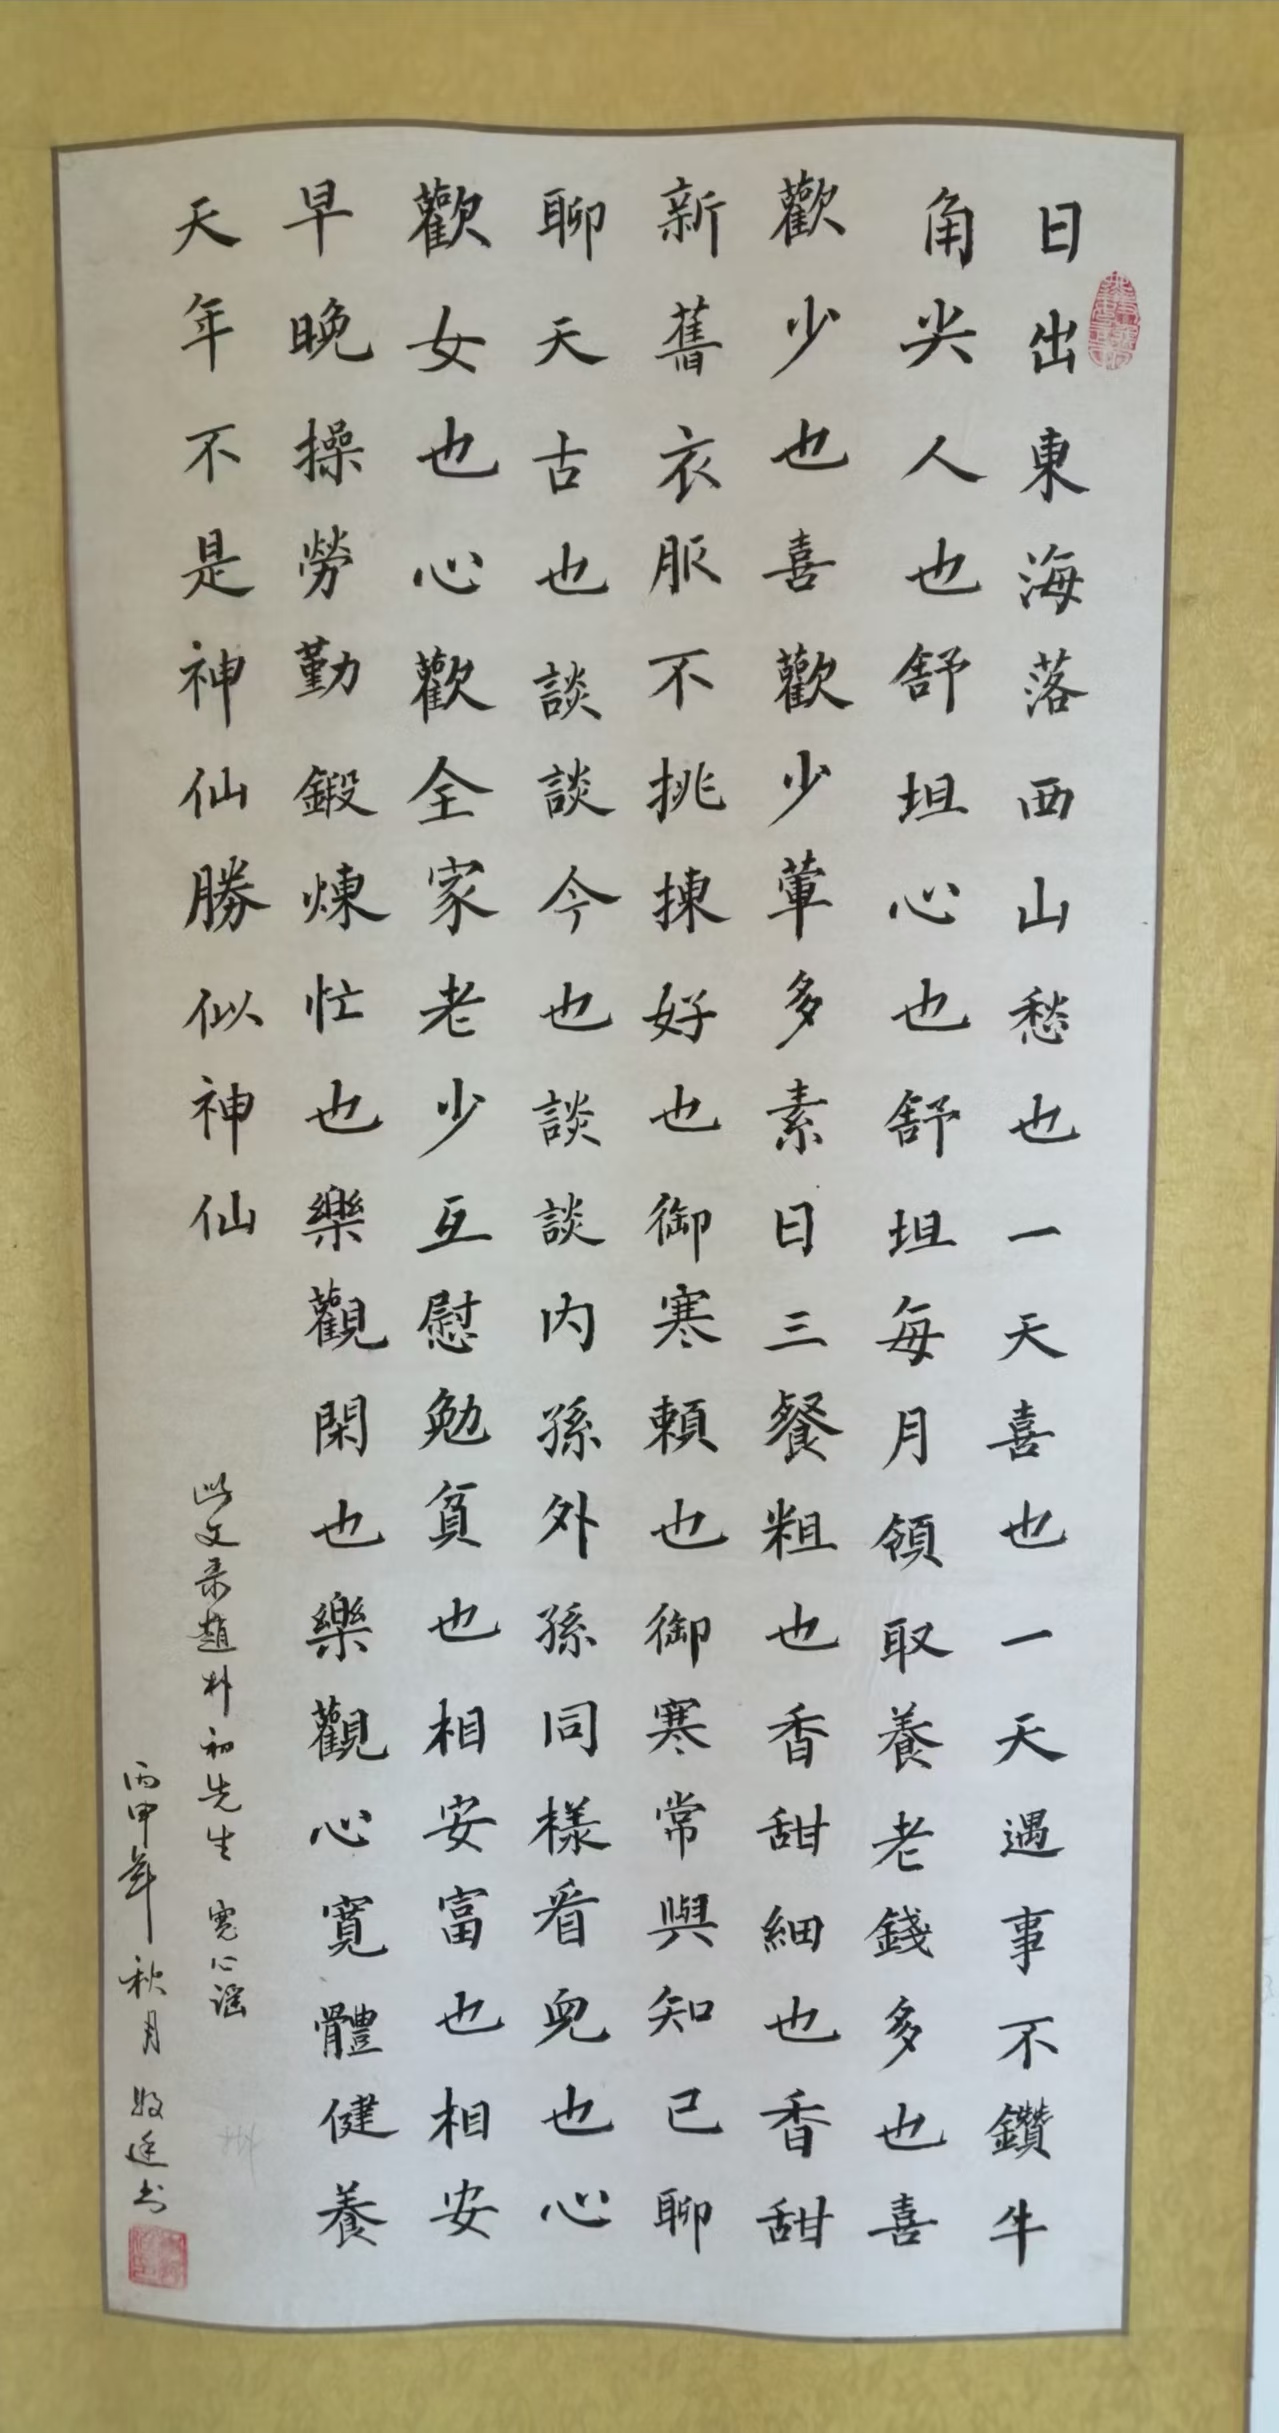 日出東海落西山愁也一天喜也一天遇事不鑽牛
角尖人也舒坦心也舒坦每月領取養老錢多也喜
歡少也喜歡少葷多素日三餐粗也香甜細也香甜
新舊衣服不挑揀好也御寒賴也御寒常與知己聊
聊天古也談談今也談談内孫外孫同樣看兒也心
歡女也心歡全家老少互慰勉貧也相安富也相安
早晚操勞勤鍛煉忙也樂觀閑也樂觀心寬體健養
天年不是神仙勝似神仙
此文录趙朴初先生 宽心谣
丙申年秋月 廷书